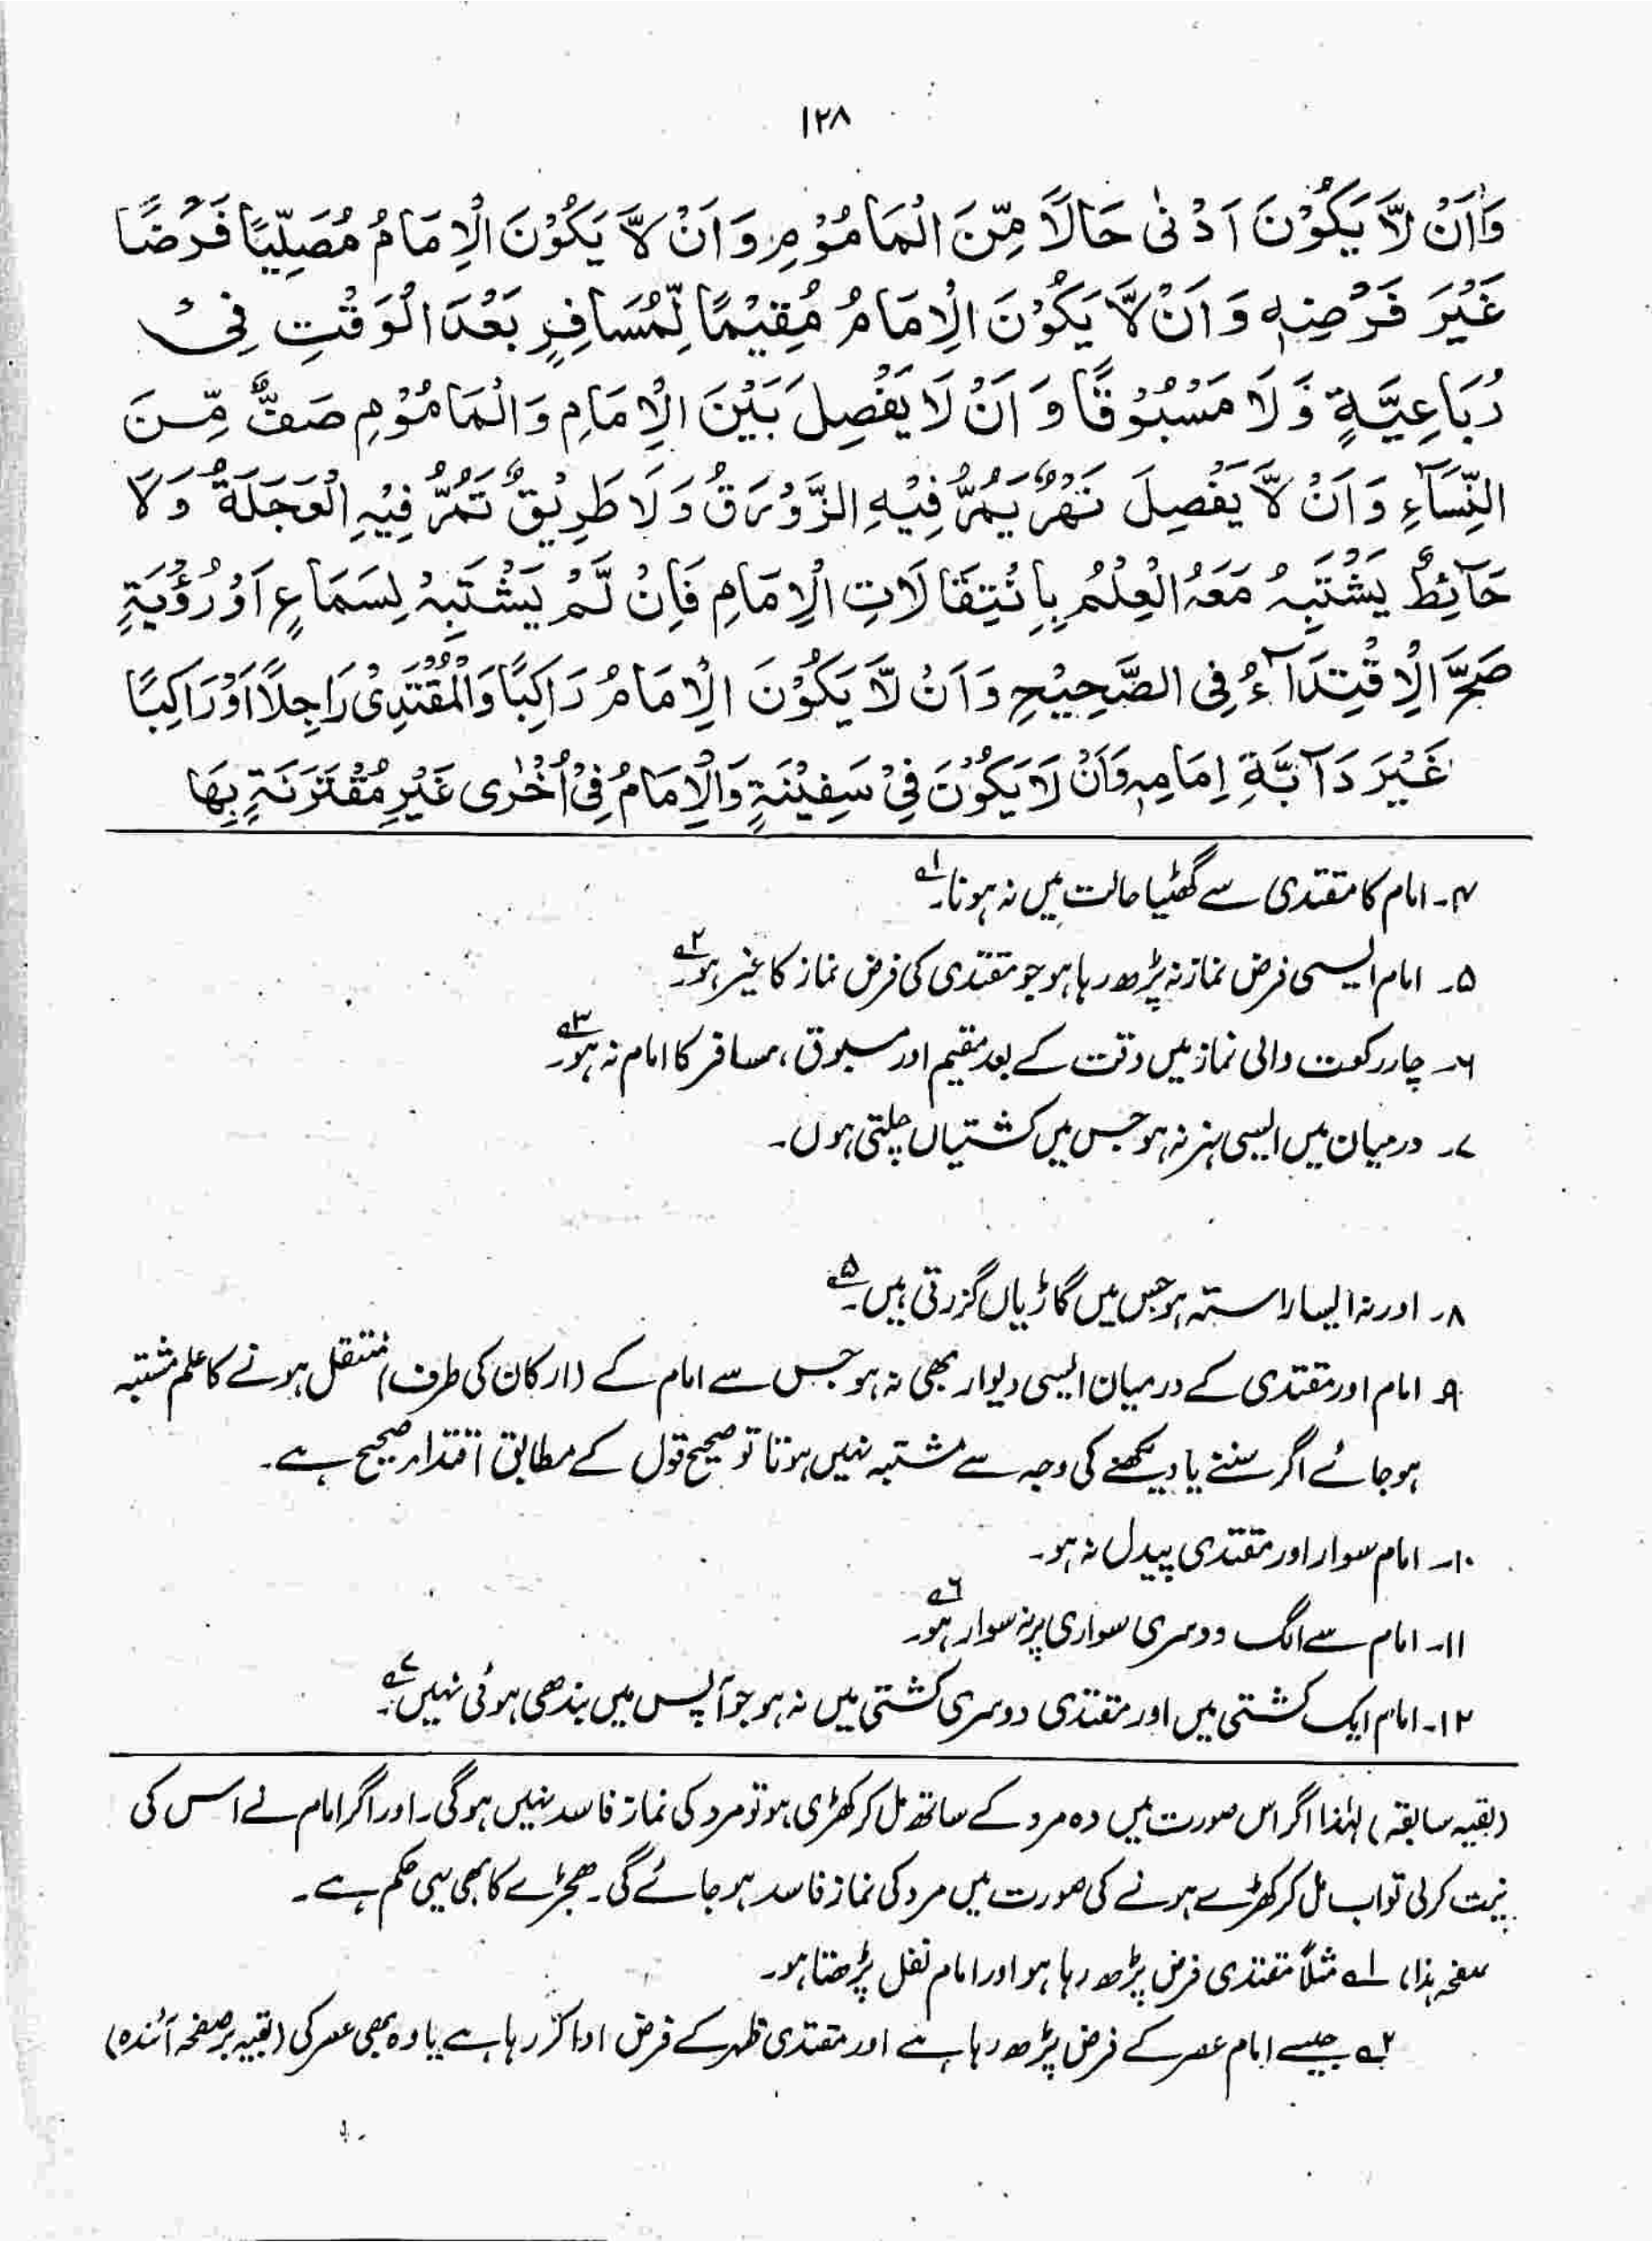 ۱۲۸
وَاَنْ لَّا يَكُوْنَ اَدْنٰى حَالًا مِّنَ الْمَامُوْمِ وَاَنْ لَّا يَكُوْنَ الْاِمَامُ مُصَلِّيًا فَرْضًا
غَيْرَ فَرْضِهٖ وَاَنْ لَّا يَكُوْنَ الْاِمَامُ مُقِيْمًا لِّمُسَافِرٍ بَعْدَ الْوَقْتِ فِىْ
رُبَاعِيَّةٍ وَّلَا مَسْبُوْقًا وَاَنْ لَا يَفْصِلَ بَيْنَ الْاِمَامِ وَالْمَامُوْمِ صَفٌّ مِّنَ
النِّسَآءِ وَاَنْ لَّا يَفْصِلَ نَهْرٌ يَمُرُّ فِيْهِ الزَّوْرَقُ وَلَا طَرِيْقٌ تَمُرُّ فِيْهِ الْعَجَلَةُ وَلَا
حَآئِطٌ يَشْتَبِهُ مَعَهُ الْعِلْمُ بِاِنْتِقَالَاتِ الْاِمَامِ فَاِنْ لَّمْ يَشْتَبِهْ لِسَمَاعٍ اَوْ رُؤْيَةٍ
صَحَّ الْاِقْتِدَآءُ فِى الصَّحِيْحِ وَاَنْ لَّا يَكُوْنَ الْاِمَامُ رَاكِبًا وَالْمُقْتَدِىْ رَاجِلًا اَوْ رَاكِبًا
غَيْرَ دَآبَّةِ اِمَامِهٖ وَاَنْ لَا يَكُوْنَ فِىْ سَفِيْنَةٍ وَالْاِمَامُ فِىْ اُخْرٰى غَيْرِ مُقْتَرَنَةٍ بِهَا
۴۔ امام کا مقتدی سے گھٹیا حالت میں نہ ہونا۔ ۱ے
۵۔ امام ایسی فرض نماز نہ پڑھ رہا ہو جو مقتدی کی فرض نماز کا غیر ہو۔ ۲ے
۶۔ چار رکعت والی نماز میں وقت کے بعد مقیم اور مسبوق، مسافر کا امام نہ ہو۔ ۳ے
۷۔ درمیان میں ایسی نہر نہ ہو جس میں کشتیاں چلتی ہوں۔
۸۔ اور نہ ایسا راستہ ہو جس میں گاڑیاں گزرتی ہیں۔ ۵ے
۹۔ امام اور مقتدی کے درمیان ایسی دیوار بھی نہ ہو جس سے امام کے (ارکان کی طرف) منتقل ہونے کا علم مشتبہ
ہو جائے اگر سننے یا دیکھنے کی وجہ سے مشتبہ نہیں ہوتا تو صحیح قول کے مطابق اقتدار صحیح ہے۔
۱۰۔ امام سوار اور مقتدی پیدل نہ ہو۔
۱۱۔ امام سے الگ دوسری سواری پر نہ سوار ہو۔ ۶ے
۱۲۔ امام ایک کشتی میں اور مقتدی دوسری کشتی میں نہ ہو جو آپس میں بندھی ہوئی نہیں۔ ۷ے
(بقیہ سابقہ) لہٰذا اگر اس صورت میں وہ مرد کے ساتھ مل کر کھڑی ہو تو مرد کی نماز فاسد نہیں ہوگی۔ اور اگر امام نے اس کی
نیت کر لی تو اب مل کر کھڑے ہونے کی صورت میں مرد کی نماز فاسد ہو جائے گی۔ ھجڑے کا بھی یہی حکم ہے۔
صفحہ ہذا) ۱ے مثلاً مقتدی فرض پڑھ رہا ہو اور امام نفل پڑھتا ہو۔
۲ے جیسے امام عصر کے فرض پڑھ رہا ہے اور مقتدی ظہر کے فرض ادا کر رہا ہے یا وہ بھی عصر کی (بقیہ بر صفحہ آئندہ)